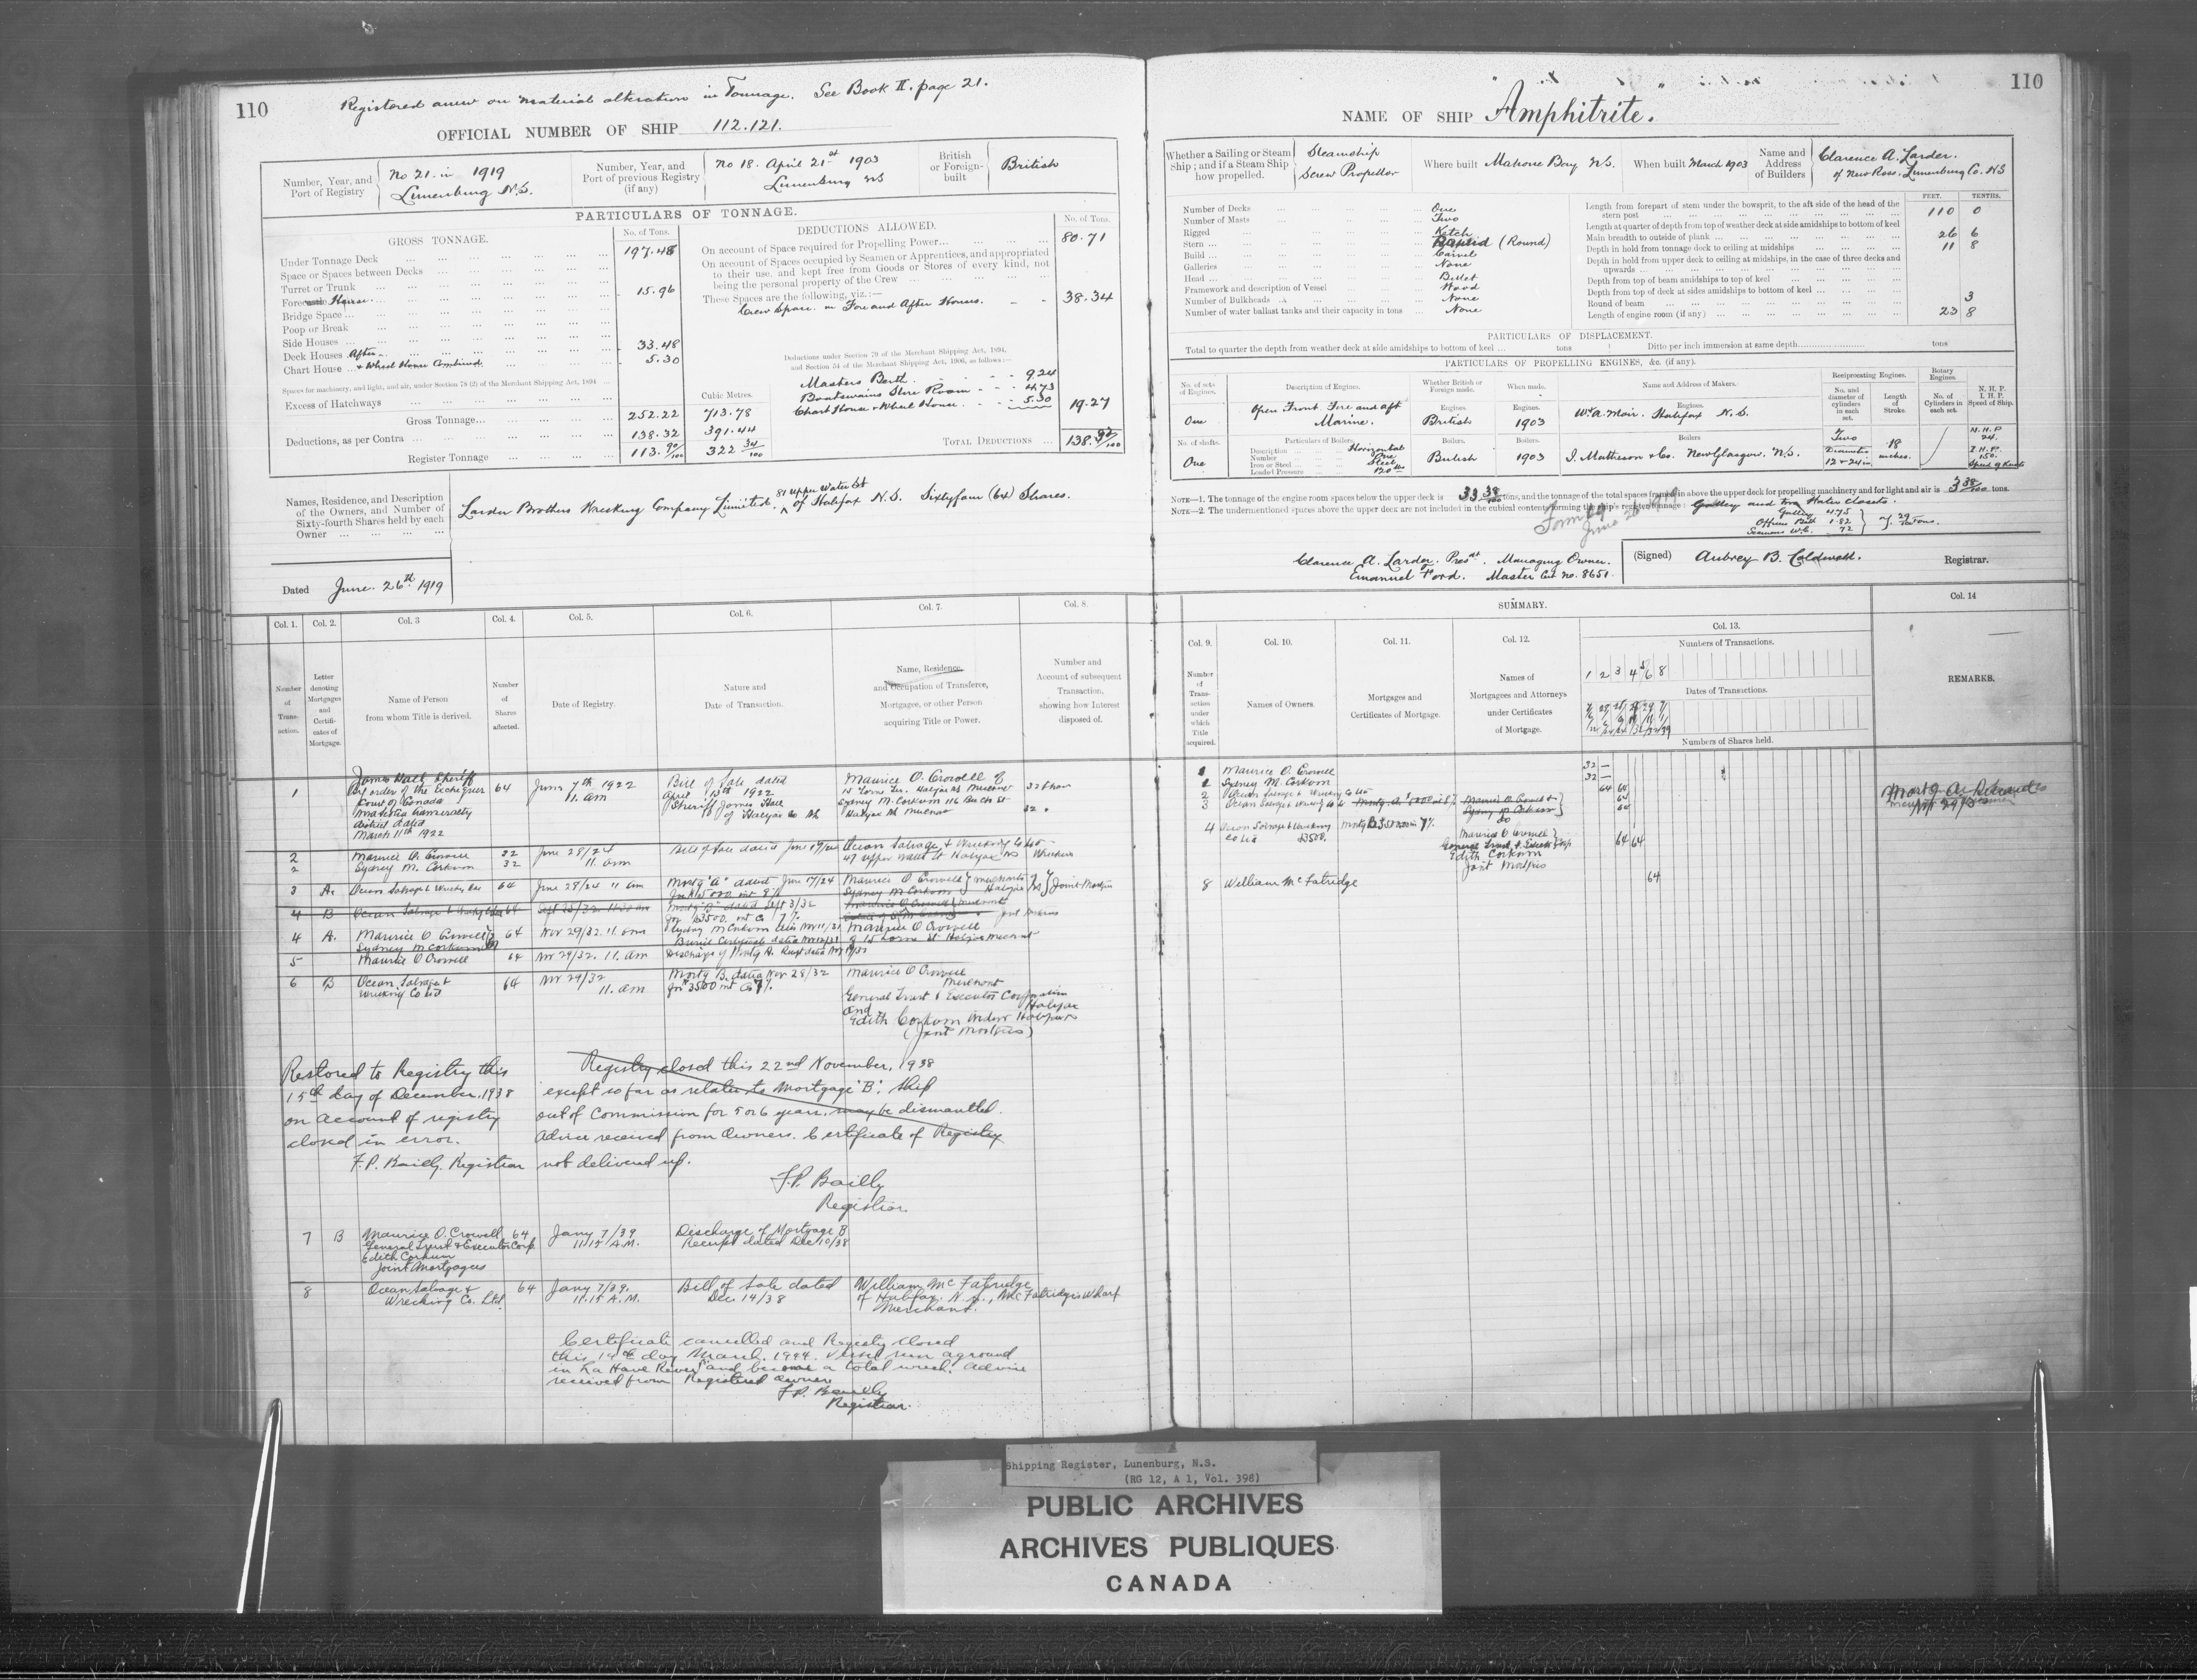 110
Registered anew on material alteration in Tonnage. See Book II. page 21.
OFFICIAL NUMBER OF SHIP 112.121.
Number, Year, and Port of Registry No 21. in 1919 Lunenburg N.S.
Number, Year, and Port of previous Registry (if any) No 18. April 21st 1903 Lunenburg NS
British or Foreign-built British
PARTICULARS OF TONNAGE.
GROSS TONNAGE. No. of Tons.
Under Tonnage Deck 197.48
Space or Spaces between Decks
Turret or Trunk
Forecastle House. 15.96
Bridge Space
Poop or Break
Side Houses
Deck Houses After 33.48
Chart House & Wheel House Combined 5.30
Spaces for machinery, and light, and air, under Section 78 (2) of the Merchant Shipping Act, 1894
Excess of Hatchways
Cubic Metres.
Gross Tonnage 252.22 713.78
Deductions, as per Contra 138.32 391.44
Register Tonnage 113.90/100 322 34/100
DEDUCTIONS ALLOWED. No. of Tons.
On account of Space required for Propelling Power 80.71
On account of Spaces occupied by Seamen or Apprentices, and appropriated
to their use, and kept free from Goods or Stores of every kind, not
being the personal property of the Crew
These Spaces are the following, viz.:—
Crew Space in Fore and After Houses. 38.34
Deductions under Section 79 of the Merchant Shipping Act, 1894,
and Section 54 of the Merchant Shipping Act, 1906, as follows:—
Masters Berth 9.24
Boatswains Store Room 4.73
Chart House & Wheel House 5.30 19.27
TOTAL DEDUCTIONS 138.32/100
Names, Residence, and Description of the Owners, and Number of Sixty-fourth Shares held by each Owner
Larder Brothers Wrecking Company Limited. 81 Upper Water St of Halifax N.S. Sixtyfour (64) Shares.
Dated June. 26th 1919
Col. 1. Col. 2. Col. 3 Col. 4. Col. 5. Col. 6. Col. 7. Col. 8.
Number of Transaction.
Letter denoting Mortgages and Certificates of Mortgage.
Name of Person from whom Title is derived.
Number of Shares affected.
Date of Registry.
Nature and Date of Transaction.
Name, Residence, and Occupation of Transferee, Mortgagee, or other Person acquiring Title or Power.
Number and Account of subsequent Transaction, showing how Interest disposed of.
1 James Hall Sheriff 64 June 7th 1922 Bill of Sale dated Maurice O. Crowell of
By order of the Exchequer 11. am April 13th 1922
Court of Canada Sheriff James Hall Sydney M. Corkum 116
of Halifax Halifax
district dated
March 11th 1922
2 Maurice O. Crowell 32 June 28/24 Bill of Sale dated June 17/24 Ocean Salvage & Wrecking Co Ltd
2 Sydney M. Corkum 32 11. am 47 Upper Water St Halifax NS
3 A. Ocean Salvage & Wreckg Co 64 June 28/24 11 am Mortg "A" dated June 17/24 Maurice O Crowell
Sydney M Corkum Halifax Joint Mortgees
4 B Ocean Salvage & 64 Sept Mortg "B" dated Sept 3/32
for $3500. int @ 7%
4 A. Maurice O Crowell 64 Nov 29/32. 11. am Maurice O Crowell
Sydney M Corkum
5 Maurice O Crowell 64 Nov 29/32. 11. am Discharge of Mortg A.
6 B Ocean Salvage & 64 Nov 29/32 Mortg B. dated Nov 28/32 Maurice O Crowell
Wrecking Co Ltd 11. am for 3500 int @ 7% Merchant
General Trust & Executor Corporation
and Halifax
Edith Corkum Widow Halifax
(Joint Mortgees)
Restored to Registry this
15th day of December, 1938
on account of registry
closed in error.
F.P. Bailly, Registrar
Registry closed this 22nd November, 1938
except so far as relates to Mortgage "B". Ship
out of Commission for 5 or 6 years, may be dismantled.
Advice received from Owners. Certificate of Registry
not delivered up.
F.P. Bailly
Registrar
7 B Maurice O. Crowell 64 Jany 7/39 Discharge of Mortgage B
General Trust & Executor Corp. 11.15 A.M. Receipt dated Dec 10/38
Edith Corkum
Joint Mortgagees
8 Ocean Salvage & 64 Jany 7/39. Bill of Sale dated William McFatridge
Wrecking Co. Ltd. 11.15 A.M. Dec. 14/38 of Halifax. N.S., McFatridges Wharf
Merchant.
Certificate cancelled and Registry closed
this 14th day March, 1944. Vessel run aground
in La Have River and become a total wreck. Advice
received from Registered Owner
F.P. Bailly
Registrar.
110
NAME OF SHIP "Amphitrite.
Whether a Sailing or Steam Ship; and if a Steam Ship how propelled. Steamship Screw Propellor
Where built Mahone Bay N.S.
When built March 1903
Name and Address of Builders Clarence A. Larder. of New Ross. Lunenburg Co. N.S
Number of Decks One
Number of Masts Two
Rigged Ketch
Stern (Round)
Build Carvel
Galleries None
Head Billet
Framework and description of Vessel Wood
Number of Bulkheads None
Number of water ballast tanks and their capacity in tons None
FEET. TENTHS.
Length from forepart of stem under the bowsprit, to the aft side of the head of the stern post 110 0
Length at quarter of depth from top of weather deck at side amidships to bottom of keel
Main breadth to outside of plank 26 6
Depth in hold from tonnage deck to ceiling at midships 11 8
Depth in hold from upper deck to ceiling at midships, in the case of three decks and upwards
Depth from top of beam amidships to top of keel
Depth from top of deck at sides amidships to bottom of keel
Round of beam 3
Length of engine room (if any) 23 8
PARTICULARS OF DISPLACEMENT.
Total to quarter the depth from weather deck at side amidships to bottom of keel tons Ditto per inch immersion at same depth tons
PARTICULARS OF PROPELLING ENGINES, &c. (if any).
No. of sets of Engines. Description of Engines. Whether British or Foreign made. When made. Name and Address of Makers. Reciprocating Engines. Rotary Engines.
No. and diameter of cylinders in each set. Length of Stroke. No. of Cylinders in each set. N. H. P. I. H. P. Speed of Ship.
One Open Front. Fore and aft Marine. Engines. British Engines. 1903 Engines. Wm A. Moir. Halifax N.S.
No. of shafts. Particulars of Boilers. Boilers. Boilers. Boilers
One Description Horizontal British 1903 I. Matheson & Co. New Glasgow. N.S.
Number One
Iron or Steel Steel
Loaded Pressure 120 lbs
Two Diameter 12 & 24 in 18 inches.
N.H.P 24. I.H.P. 150.
NOTE—1. The tonnage of the engine room spaces below the upper deck is 33 38/100 tons, and the tonnage of the total spaces framed in above the upper deck for propelling machinery and for light and air is 3 38/100 tons.
NOTE—2. The undermentioned spaces above the upper deck are not included in the cubical contents forming the ship's register tonnage: Galley and two Water closets.
Galley 4.75
Officers Bath 1.82
Seamens W.C. .72
7. 29/100 tons.
Form 19
June 26 1919
Clarence A. Larder. Prest. Managing Owner.
Emanuel Ford. Master Cert no. 8651.
(Signed) Aubrey B. Caldwell. Registrar.
SUMMARY.
Col. 9. Col. 10. Col. 11. Col. 12. Col. 13. Col. 14
Number of Transaction under which Title acquired.
Names of Owners.
Mortgages and Certificates of Mortgage.
Names of Mortgagees and Attorneys under Certificates of Mortgage.
Numbers of Transactions.
1 2 3 4 5 6 8
Dates of Transactions.
Numbers of Shares held.
REMARKS.
1 Maurice O. Crowell 32
1 Sydney M. Corkum 32
2 Ocean Salvage & Wrecking Co Ltd 64 64
3 Ocean Salvage & Wrecking Co 64
4 Ocean Salvage & Wrecking Co Ltd $3500. 7% Maurice O Crowell
General Trust & Execut Corp 64 64
Edith Corkum
Joint Mortgees
8 William McFatridge 64
Shipping Register, Lunenburg, N.S.
(RG 12, A 1, Vol. 398)
PUBLIC ARCHIVES
ARCHIVES PUBLIQUES
CANADA